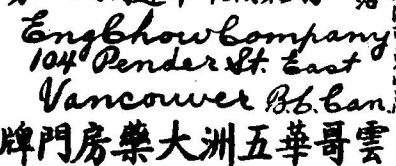 Eng Chow Company
104 Pender St. East
Vancouver B.C. Can.
雲哥華五洲大藥房門牌